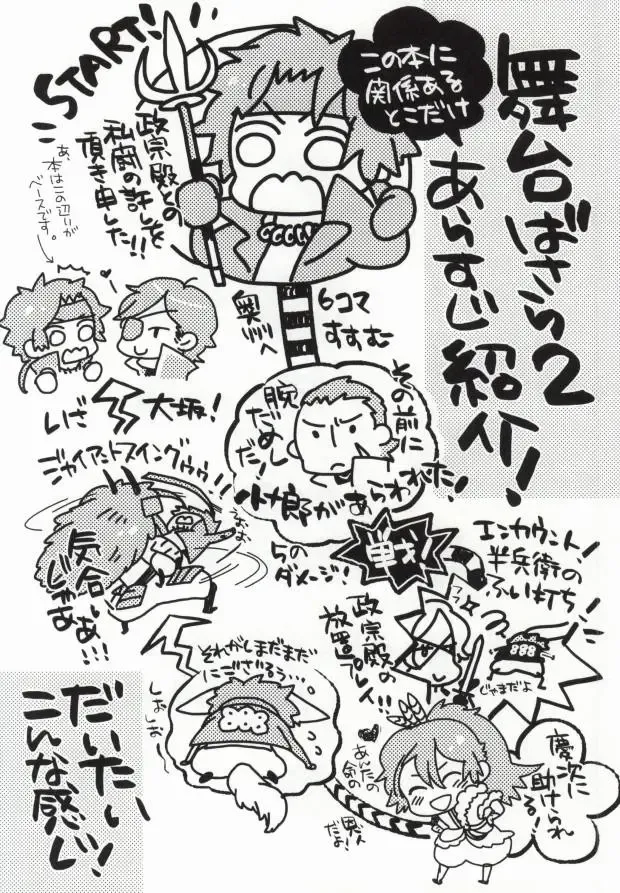 舞台ばさら2
あらすじ紹介！
この本に
関係ある
とこだけ
START!
政宗殿との
私闘の許しを
頂き申した!!
あ、本はこの辺りが
ベースです。
6コマ
すすむ
奥州へ
その前に
腕だめしだ！
小十郎があらわれた！
いざ
大坂！
ジャイアントスイングゥゥ!!
気合いじゃあああ!!!
戦！
らのダメージ！
エンカウント！
半兵衛の
ふい打ち！
じゃまだよ
政宗殿の
放置プレイ!!
それがしまだまだ
にござるぅ…
しおしお
慶次に
助けられる！
だいたい
こんな感じ！